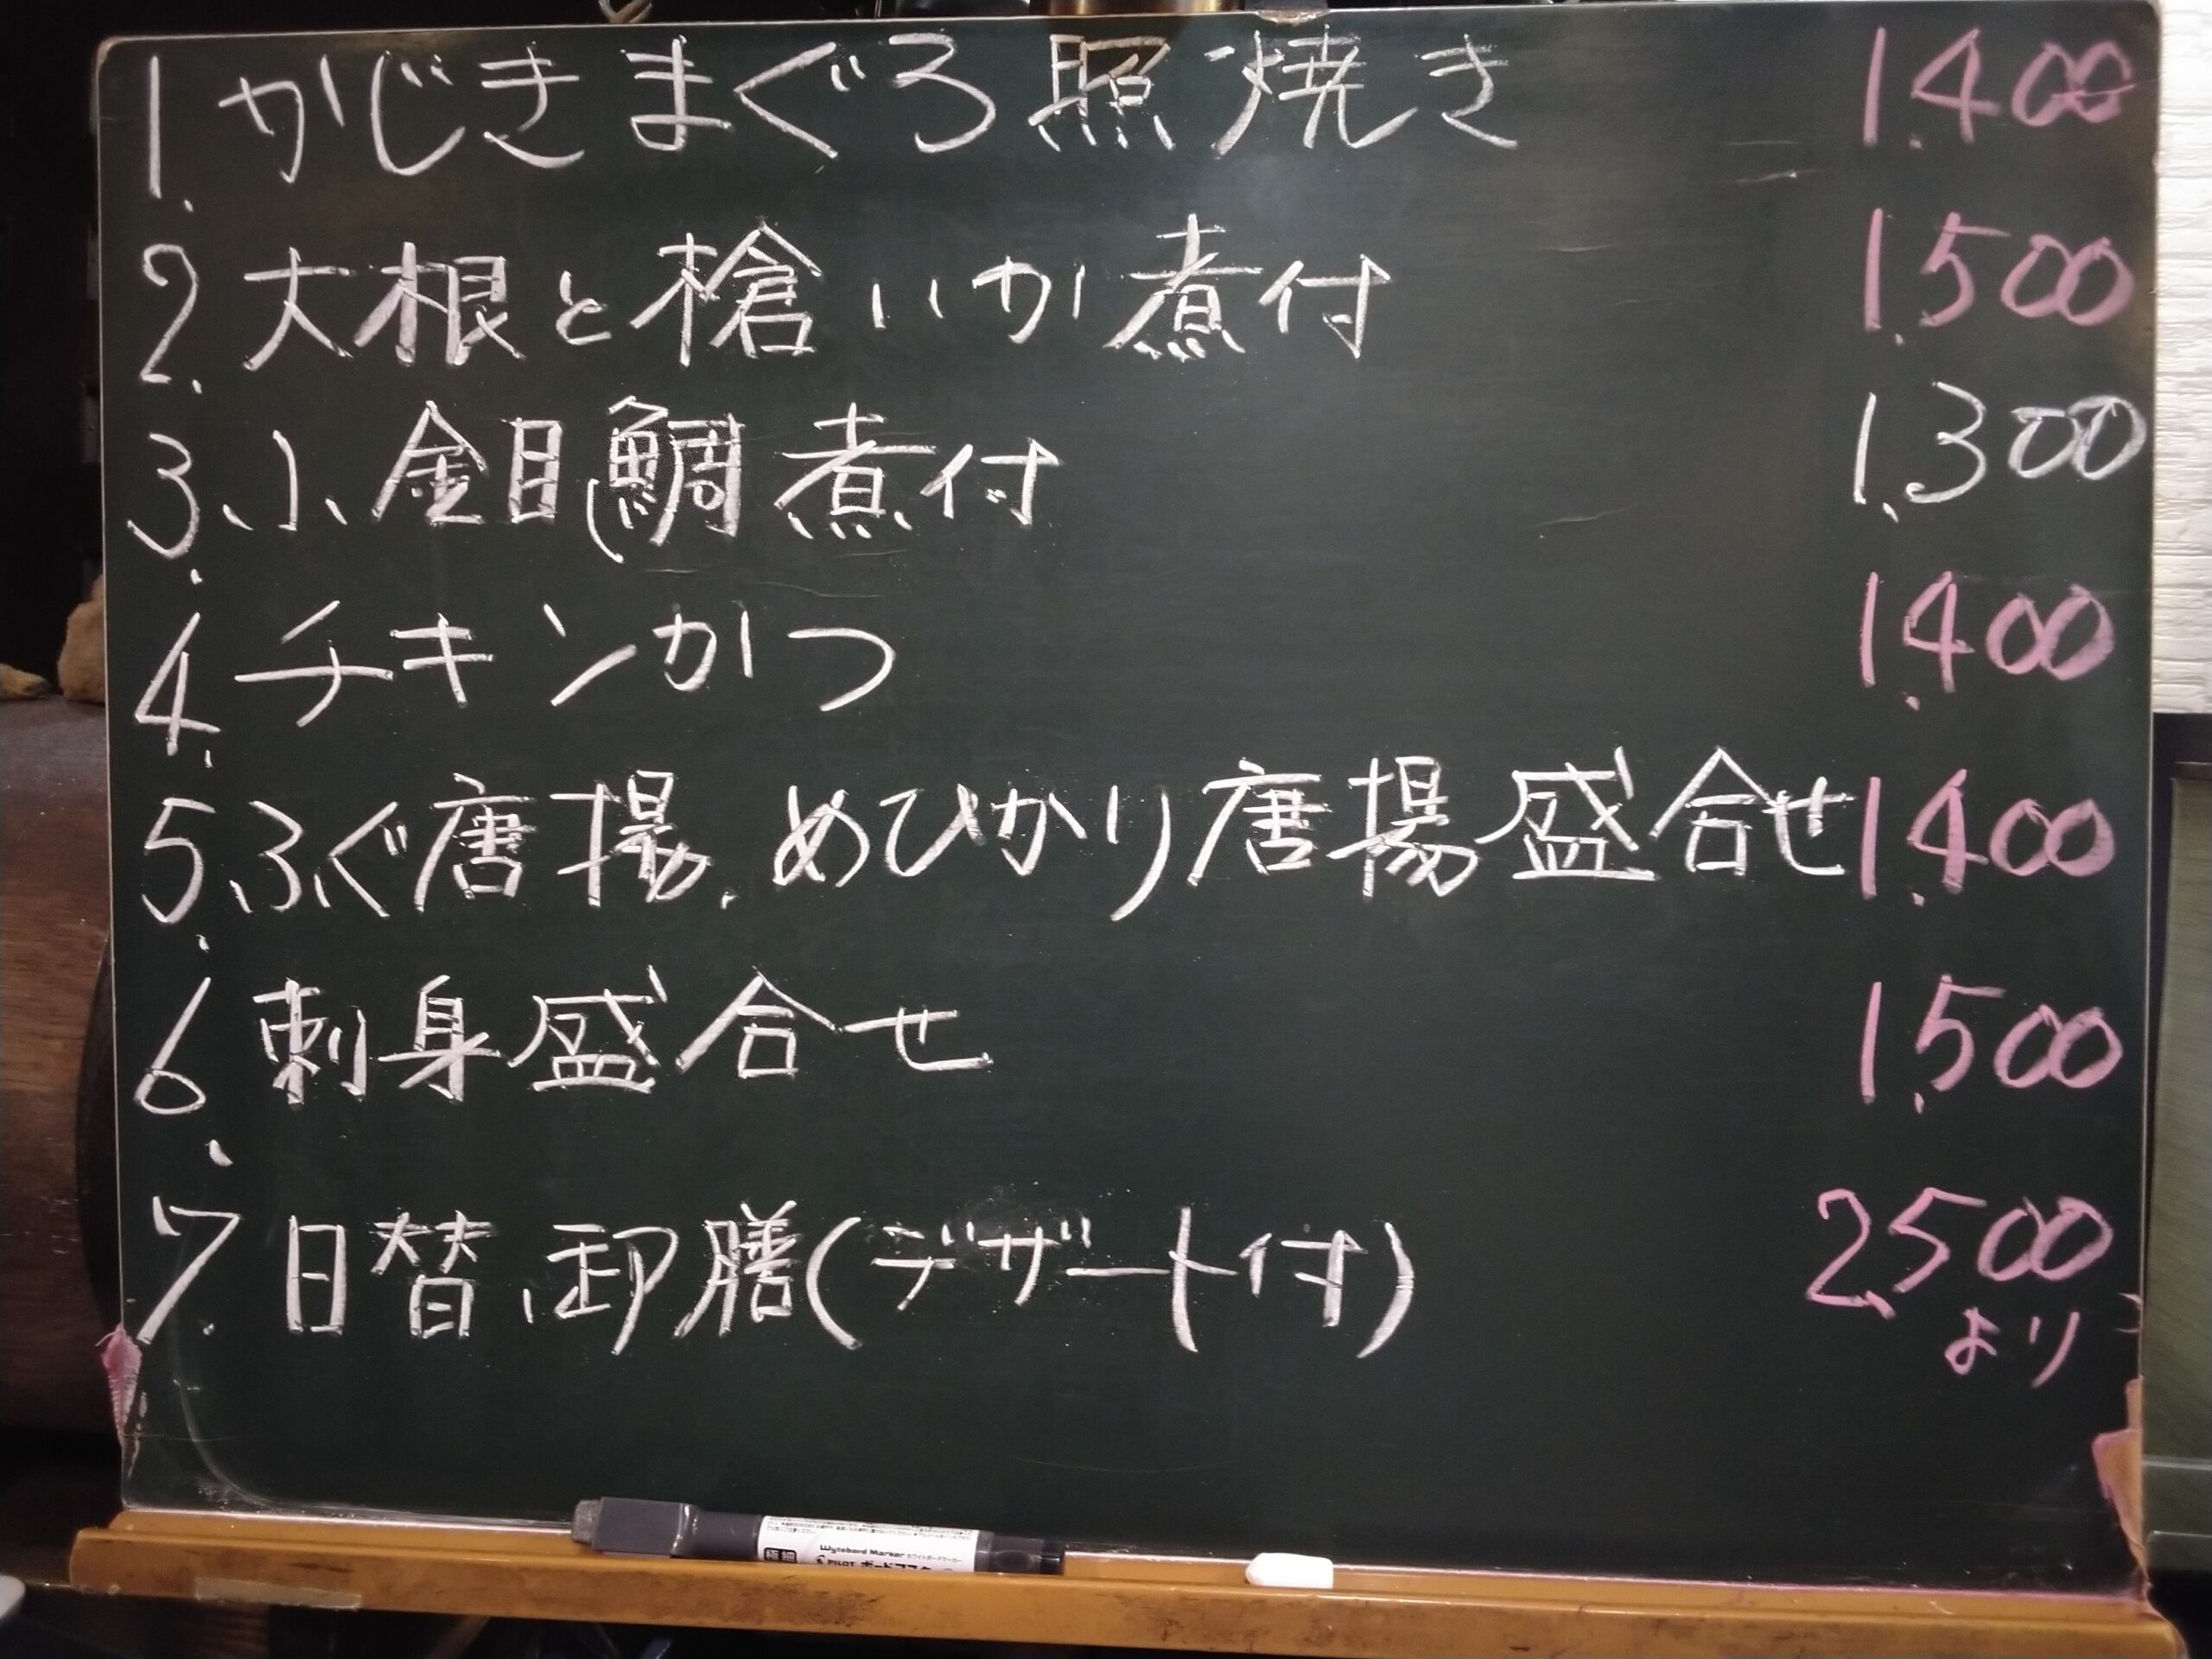 1. かじきまぐろ照焼き 1.400
2. 大根と槍いか煮付 1.500
3. 小金目鯛煮付 1.300
4. チキンかつ 1.400
5. ふぐ唐揚.めひかり唐揚盛合せ 1.400
6. 刺身盛合せ 1.500
7. 日替り御膳(デザート付) 2.500
より
Wytebord Marker ホワイトボードマーカー
PILOT ボードマスター